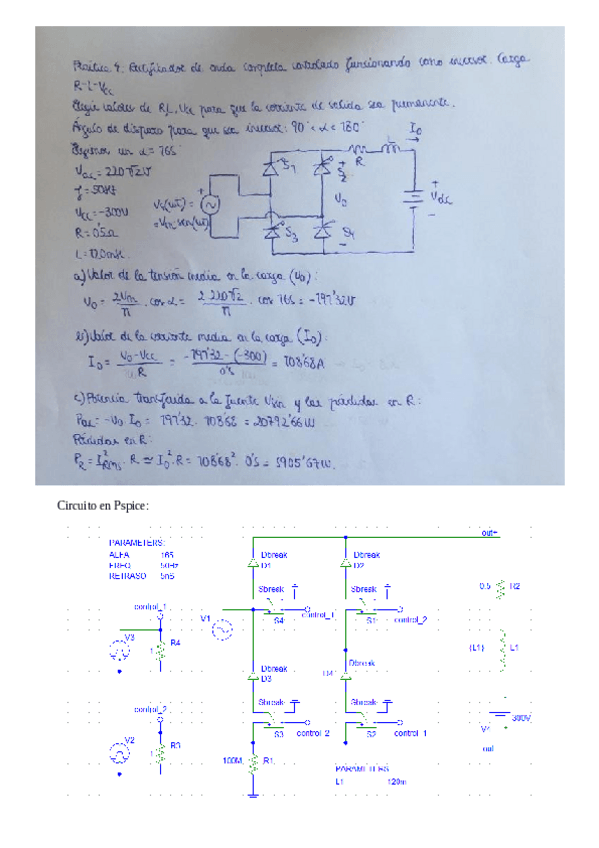 Práctica 4. Rectificador de onda completa controlado funcionando como inversor. Carga
R-L-Vcc
Elegir valores de R,L,Vcc para que la corriente de salida sea permanente.
Ángulo de disparo para que sea inversor: 90° < α < 180°
Elegimos un α = 165
Vac = 220√2 V
f = 50Hz
Vcc = -300V
R = 0'5Ω
S1
S2
S3
S4
R
Io
Vo
Vdc
+
-
Vs(ωt) =
= Vm sen(ωt)
a) Valor de la tensión media en la carga (Vo):
Vo = 2Vm/π · cos α = 2·220√2/π · cos 165 = -191'32V
b) Valor de la corriente media en la carga (Io):
Io = Vo-Vcc/R = -191'32-(-300)/0'5 = 108'68A
c) Potencia transferida a la fuente y las pérdidas en R:
Pac = -Vo Io = 191'32 · 108'68 = 20792'66W
Pérdidas en R:
PR = I²Rms · R ≃ Io² · R = 108'68² · 0'5 = 5905'67W.
Circuito en Pspice:
PARAMETERS:
ALFA 165
FREQ 50Hz
RETRASO 5nS
out+
Dbreak
D1
Dbreak
D2
Sbreak
S4
control_1
Sbreak
S1
control_2
0.5 R2
control_1
V3
1 R4
V1
(L1) L1
Dbreak
D3
Dbreak
D4
control_2
V2
1 R3
Sbreak
S3
control_2
Sbreak
S2
control_1
300V
V4
out
100M R1
PARAMETERS
L1 120m